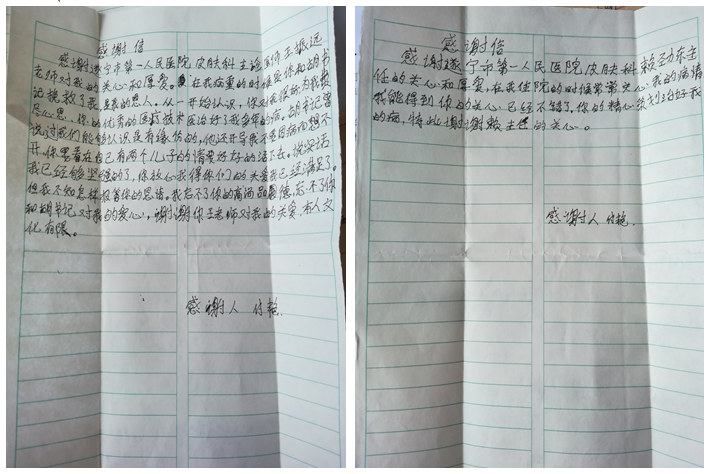 感谢信
感谢遂宁市第一人民医院皮肤科主治医师王振远
老师对我的关心和厚爱。在我病重的时候是你和胡书
记挽救了我,是我的恩人。从一开始认识,你对我很好为我费
尽心思。你的优秀的医疗技术医治好了我多年的病。胡书记曾
说过我们能够认识是有缘份的,他还开导我不要因病而想不
开。你要看在自己有两个儿子的请要好好的活下去。说实话
我已经够坚强的了,你放心我得你们的关爱我已经满足了
但我不知怎样报答你的恩情。我忘不了你的高尚品德,忘不了你
和胡书记对我的爱心,谢谢你王老师对我的关爱。本人文
化有限。
感谢人 付艳.
感谢信
感谢遂宁市第一人民医院皮肤科赖劲东主
任的关心和厚爱,在我住院的时候常常关心我的病情
我能得到你的关心已经不错了,你的精心策划治好我
的病,特此谢谢赖主任的关心。
感谢人 付艳.